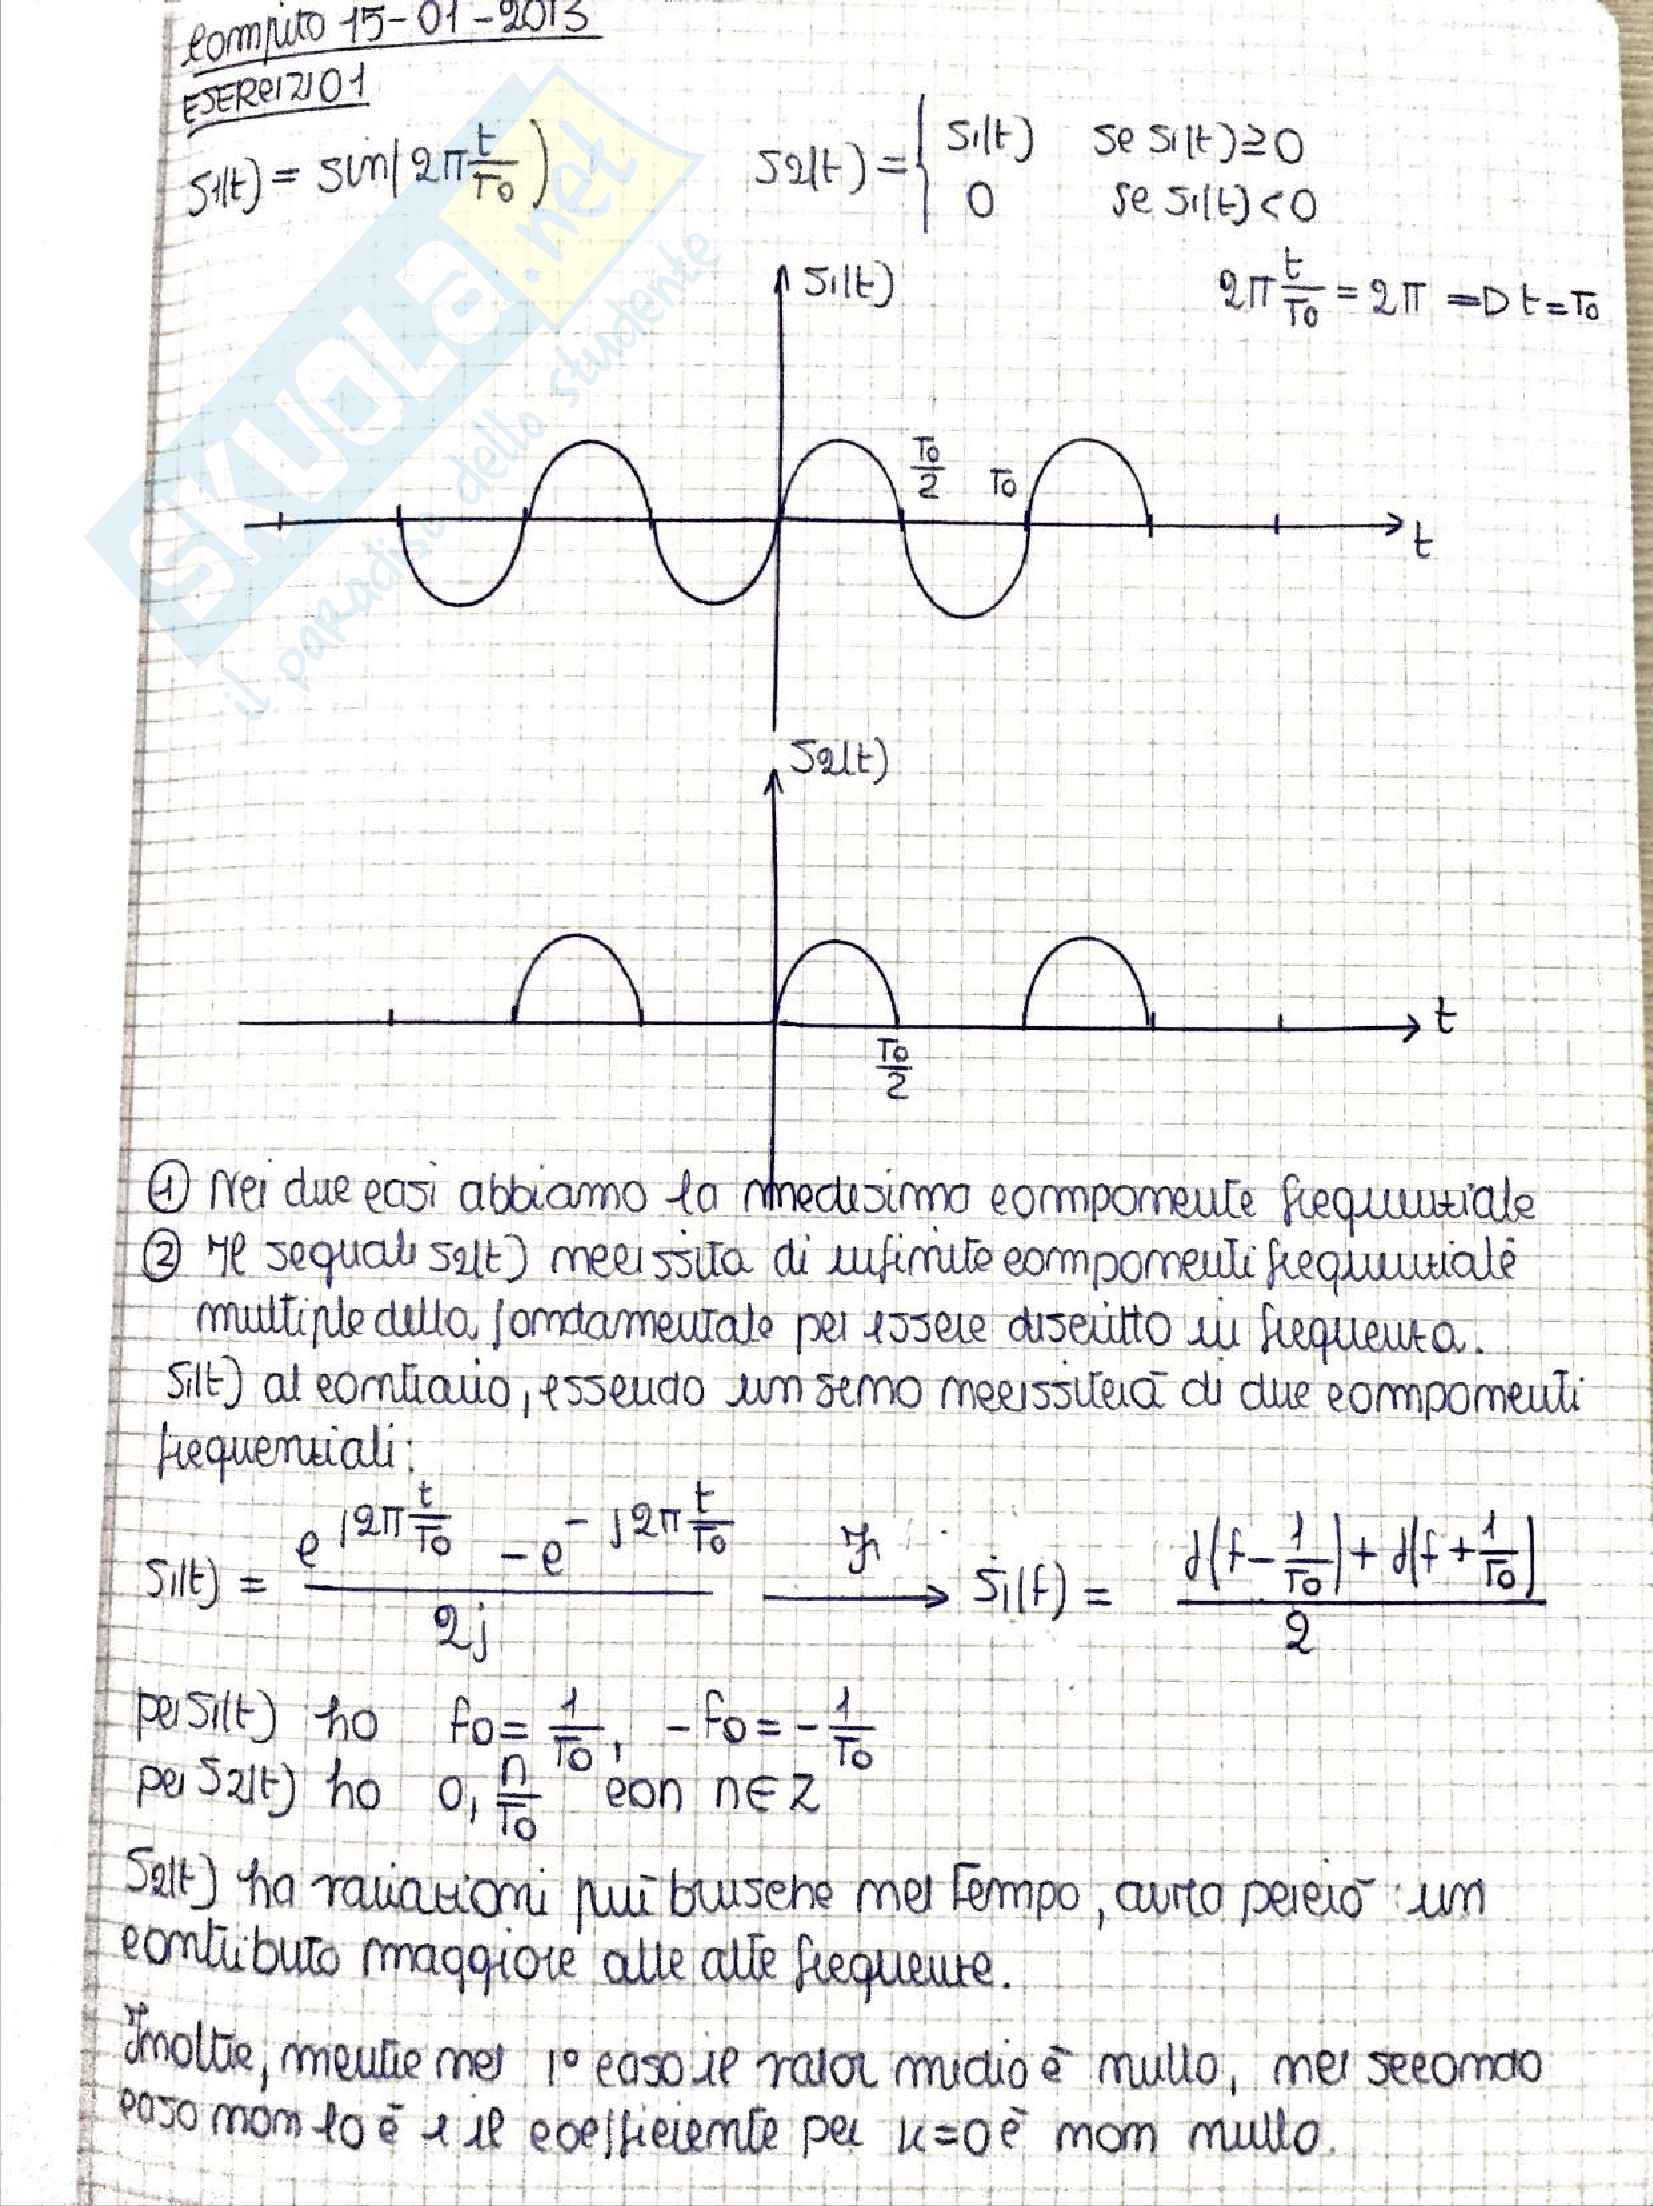 Compito 15-01-2013
ESERCIZIO 1
S1(t) = sin(2π t/T0)
S2(t) = { S1(t) se S1(t) ≥ 0
0 se S1(t) < 0
2π t/T0 = 2π => t = T0
S1(t)
T0/2 T0
t
S2(t)
t
T0/2
① Nei due casi abbiamo la medesima componente frequenziale
② Il segnale S2(t) necessita di infinite componenti frequenziale
multiple della fondamentale per essere descritto in frequenza.
S1(t) al contrario, essendo un seno necessiterà di due componenti
frequenziali:
S1(t) = (e^(j2π t/T0) - e^(-j2π t/T0)) / 2j ℱ→ S1(f) = (δ(f - 1/T0) + δ(f + 1/T0)) / 2
per S1(t) ho f0 = 1/T0, -f0 = -1/T0
per S2(t) ho 0, n/T0 con n ∈ Z
S2(t) ha variazioni più brusche nel tempo, avrà perciò un
contributo maggiore alle alte frequenze.
Inoltre, mentre nel 1° caso il valor medio è nullo, nel secondo
caso non lo è e il coefficiente per k=0 è non nullo.
SKUOLa.net
il paradiso dello studente